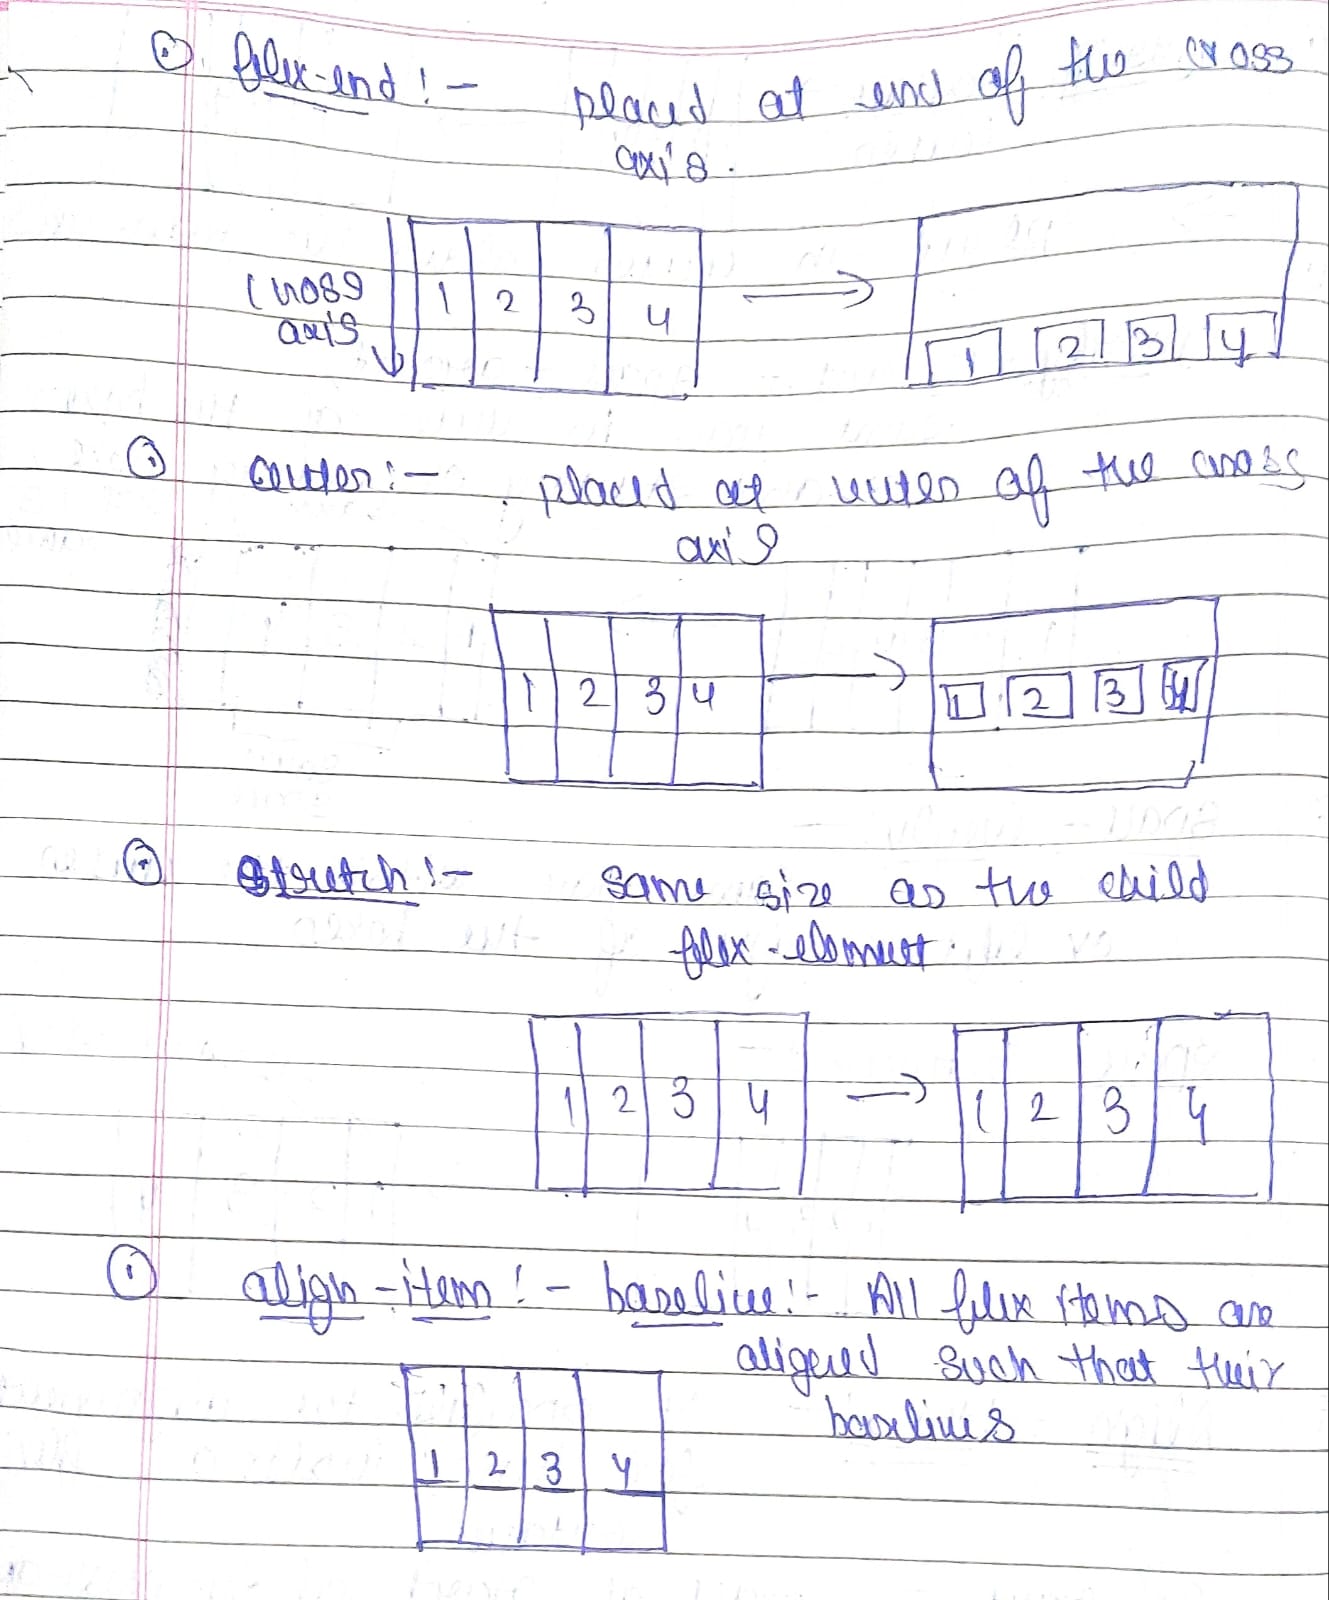 flex-end :- placed at end of the cross
axis.
Cross
axis
1 2 3 4
1 2 3 4
center :- placed at center of the cross
axis
1 2 3 4
1 2 3 4
stretch :- same size as the child
flex-element.
1 2 3 4
1 2 3 4
align-item :- baseline :- All flex items are
aligned such that their
baselines
1 2 3 4